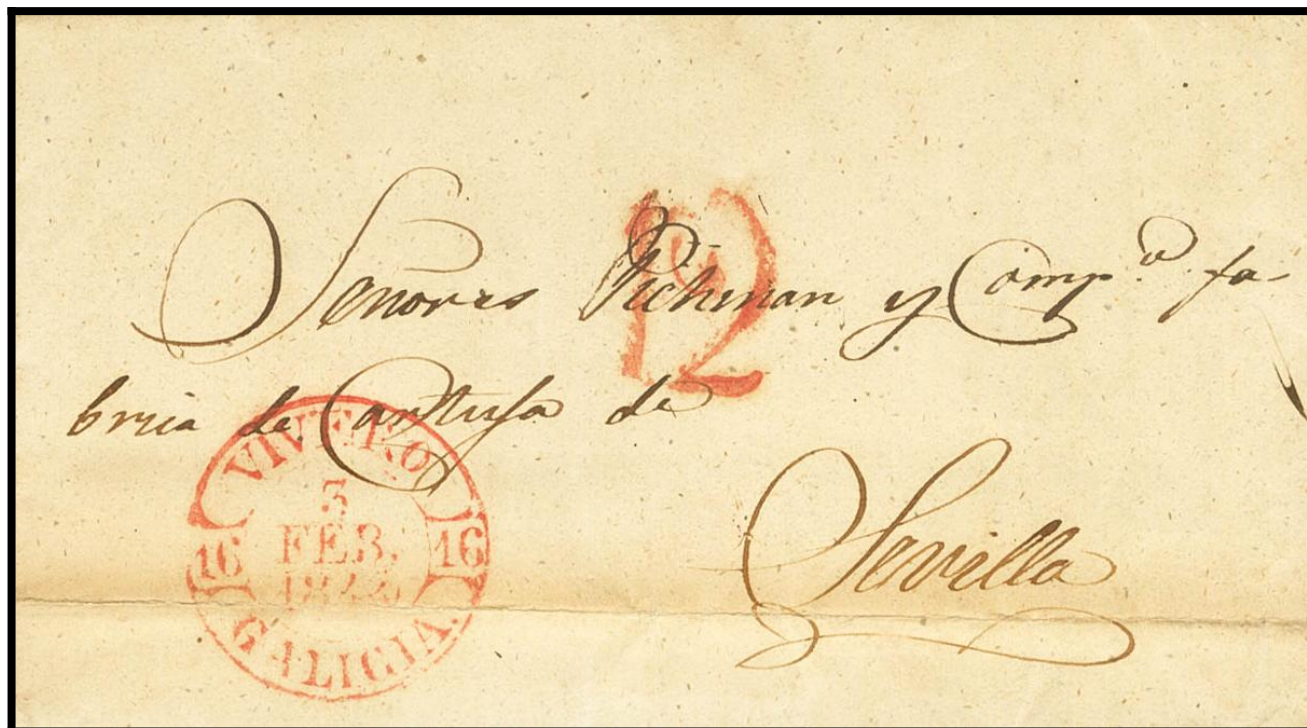 12
Señores Pichman y Comp.ª fa-
brica de Cartuja de
Sevilla
VIVERO
3
FEB.
16 16
GALICIA.